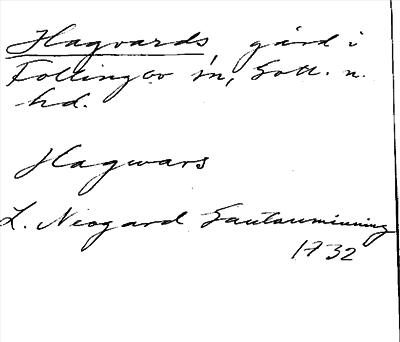 Hagvards, gård i
Follingbo sn, Gotl. n.
hd.
Hagwars
L. Neogard Gautauminning
1732